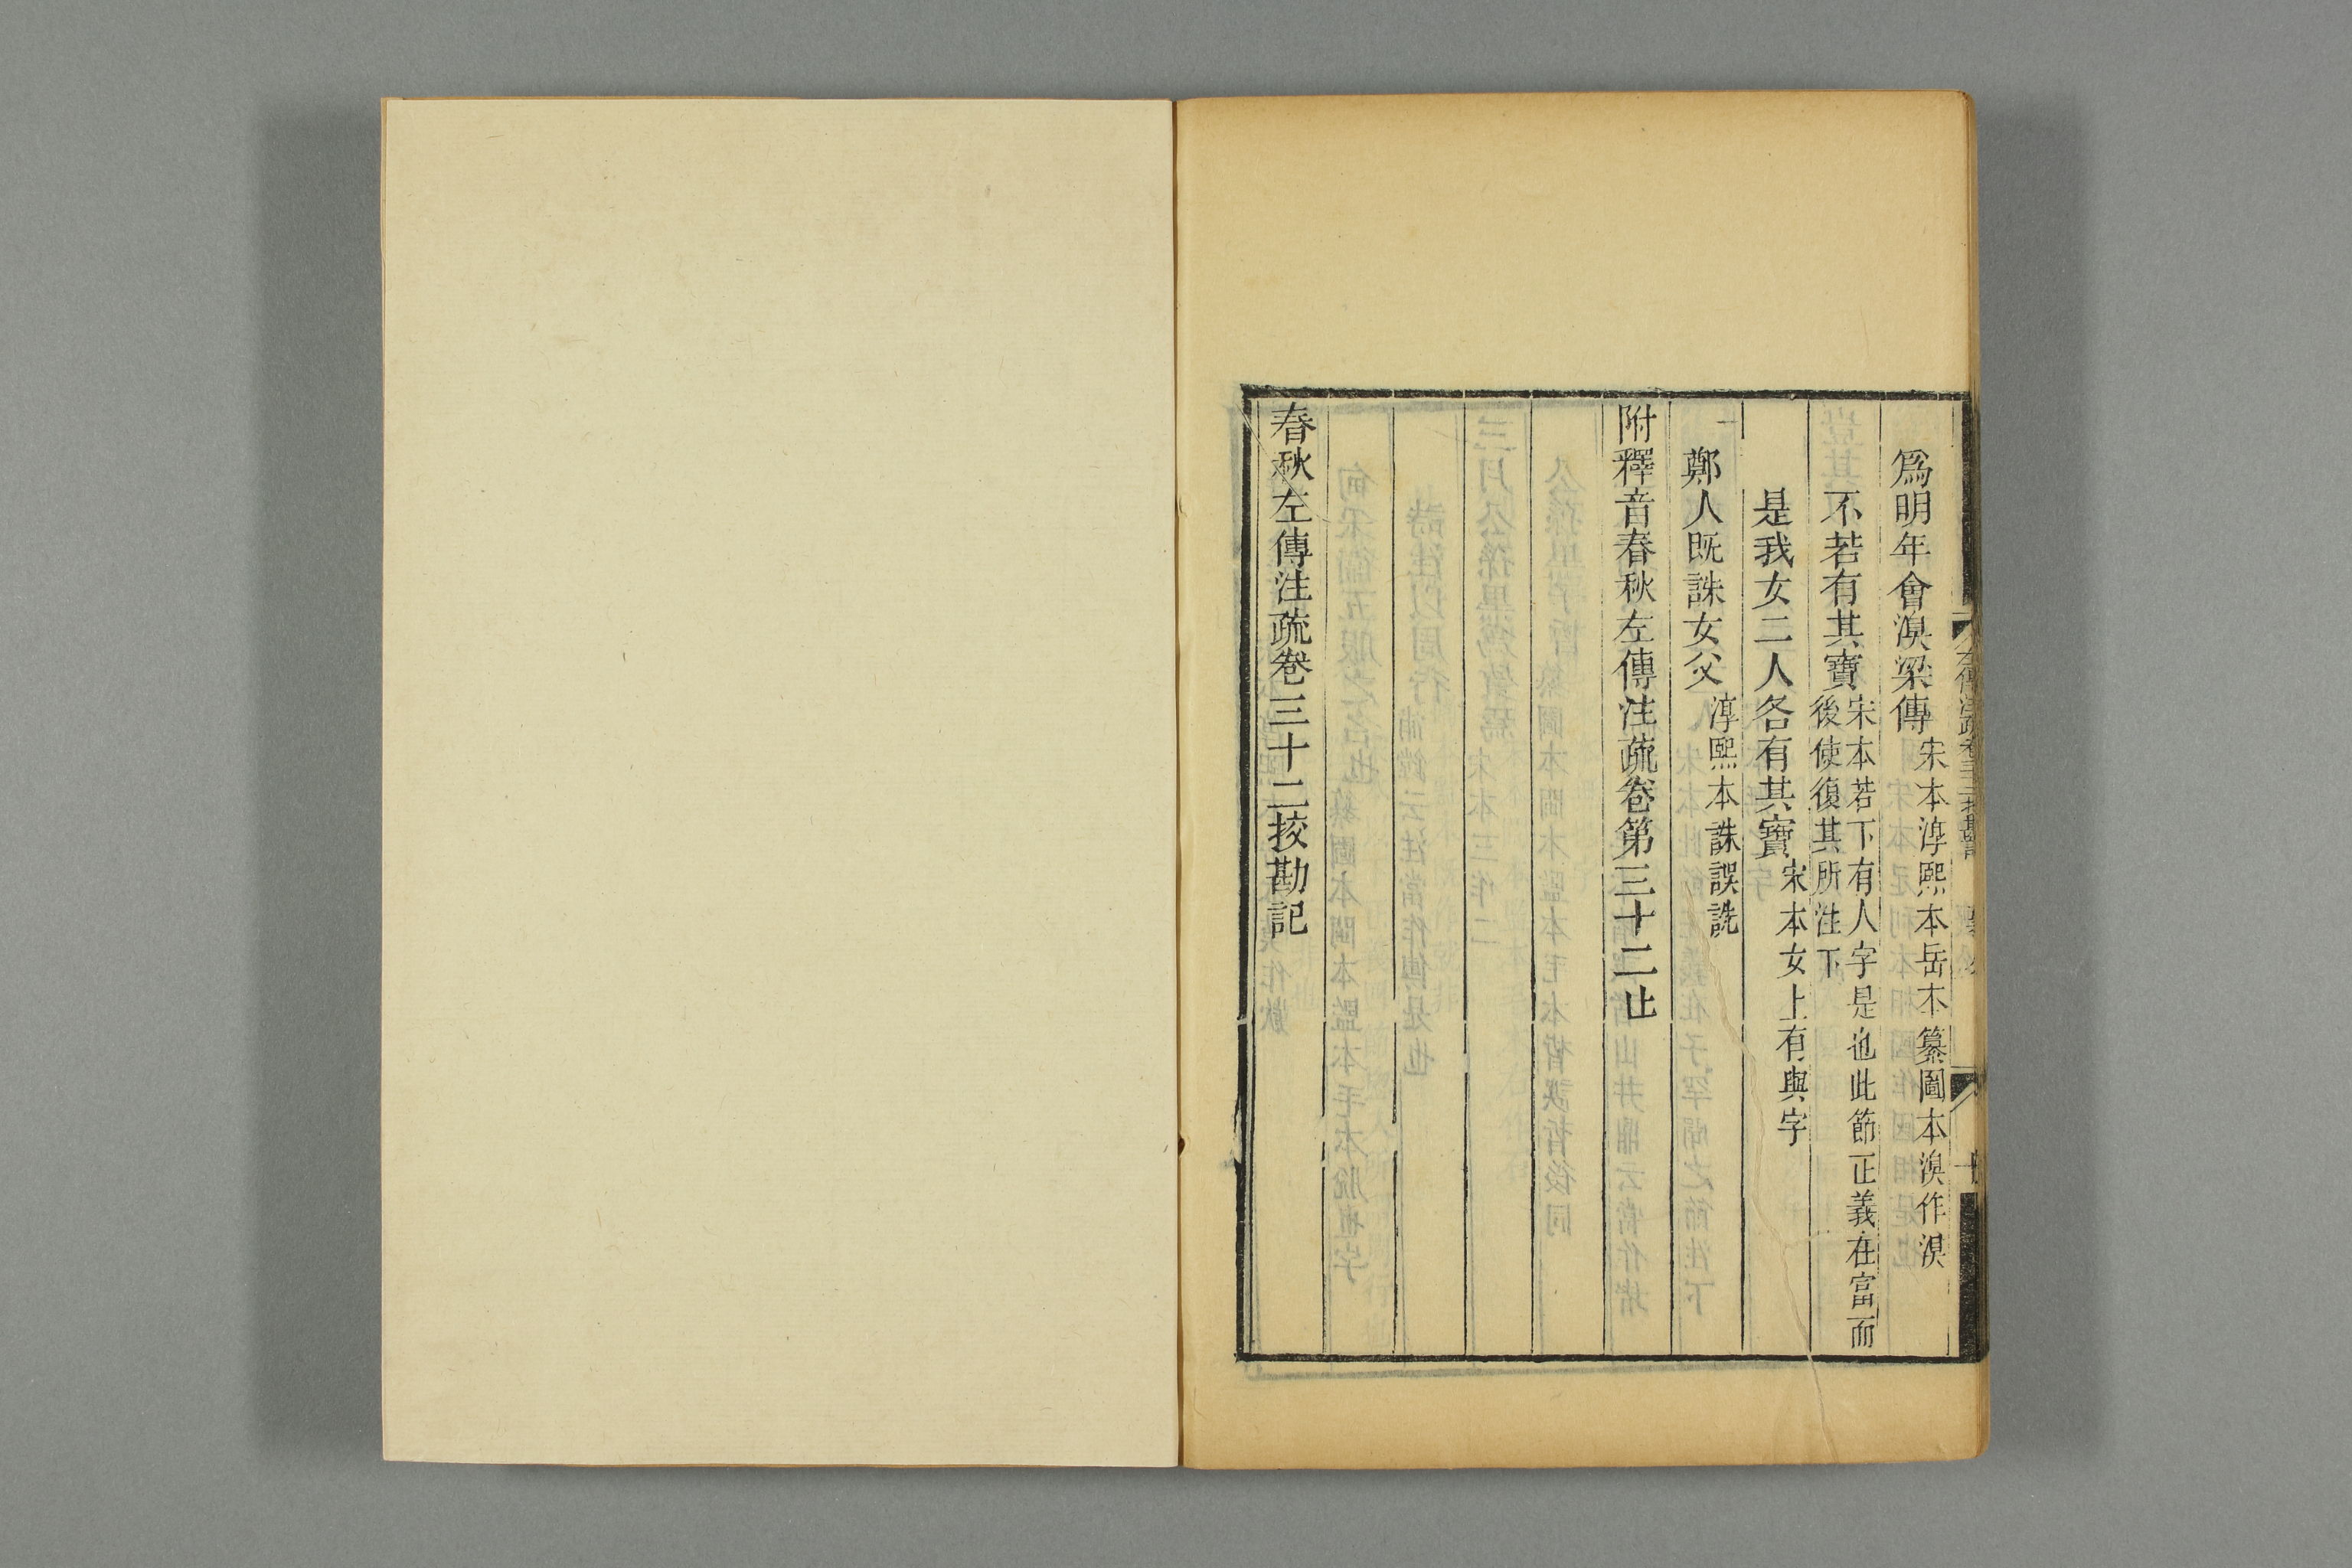 爲明年會湨梁傳宋本淳熙本岳本纂圖本湨作溴
不若有其寶宋本若下有人字是也此節正義在富而後使復其所注下
是我女二人各有其寶宋本女上有與字
鄭人既誅女父淳熙本誅誤詵
附釋音春秋左傳注疏卷第三十二止
春秋左傳注疏卷三十二挍勘記